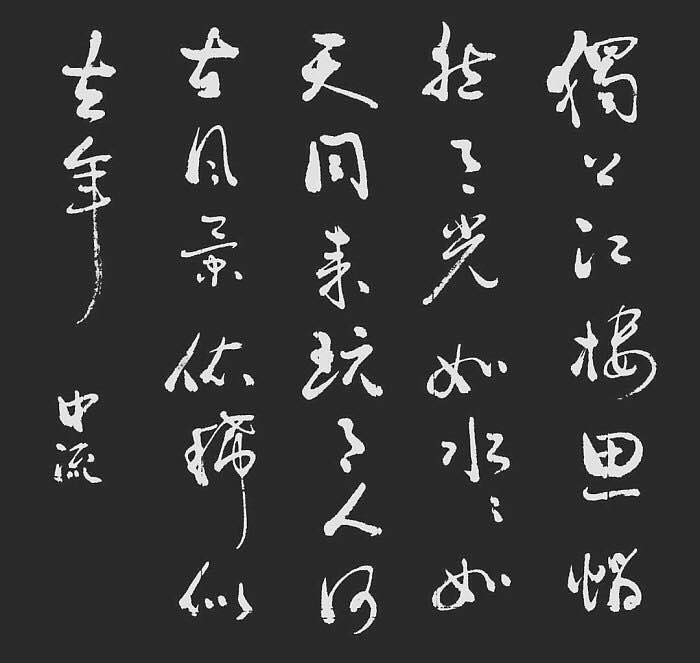 獨上江樓思悄
然月光如水〻如
天同来玩月人何
在風景依稀似
去年
中流